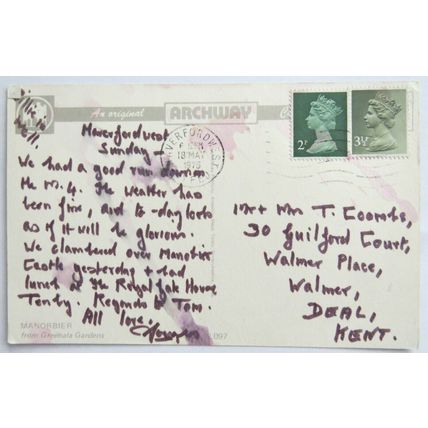 An original ARCHWAY
Haverfordwest
Sunday -
We had a good run down on
the M.4. The weather has
been fine, and to-day looks
as if it will be glorious.
We clambered over Manorbier
Castle yesterday + had
lunch at the Royal Gate House
Tenby. Regards to Tom.
All love,
MANORBIER
from Greenala Gardens
HAVERFORDWEST
18 MAY
1975
2P
3½P
Mr + Mrs T. Coombs,
30 Guilford Court,
Walmer Place,
Walmer,
DEAL,
KENT.